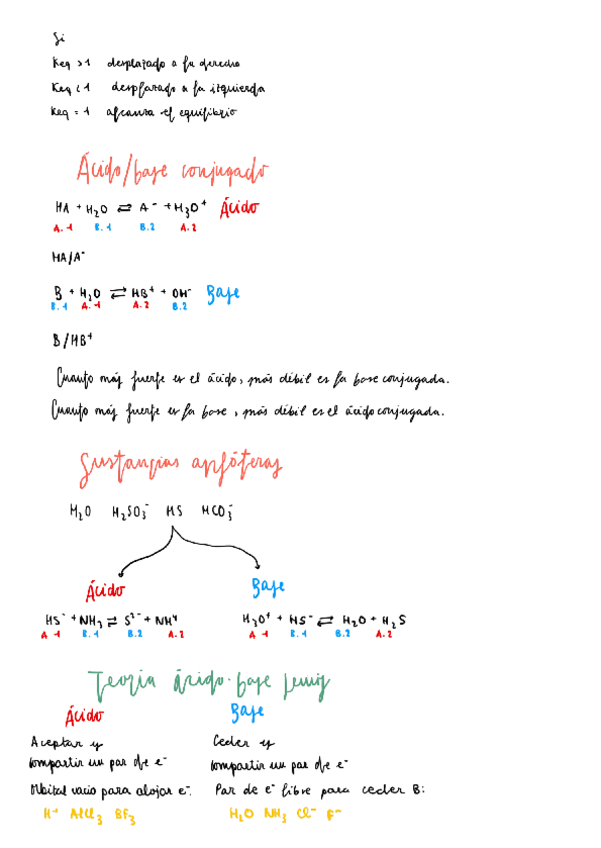 Si
Keq > 1 desplazado a la derecha
Keq < 1 desplazado a la izquierda
Keq = 1 alcanza el equilibrio
Ácido/base conjugado
HA + H₂O ⇌ A⁻ + H₃O⁺ Ácido
A.1 B.1 B.2 A.2
HA/A⁻
B + H₂O ⇌ HB⁺ + OH⁻ Base
B.1 A.1 A.2 B.2
B/HB⁺
Cuanto más fuerte es el ácido, más débil es la base conjugada.
Cuanto más fuerte es la base, más débil es el ácido conjugada.
Sustancias anfóteras
H₂O H₂SO₃⁻ HS HCO₃⁻
Ácido Base
HS⁻ + NH₃ ⇌ S²⁻ + NH⁴ H₃O⁺ + HS⁻ ⇌ H₂O + H₂S
A.1 B.1 B.2 A.2 A.1 B.1 B.2 A.2
Teoría ácido-base Lewis
Ácido Base
Aceptar y Ceder y
compartir un par de e⁻ compartir un par de e⁻
Orbital vacío para alojar e⁻. Par de e⁻ libre para ceder B:
H⁺ AlCl₃ BF₃ H₂O NH₃ Cl⁻ F⁻